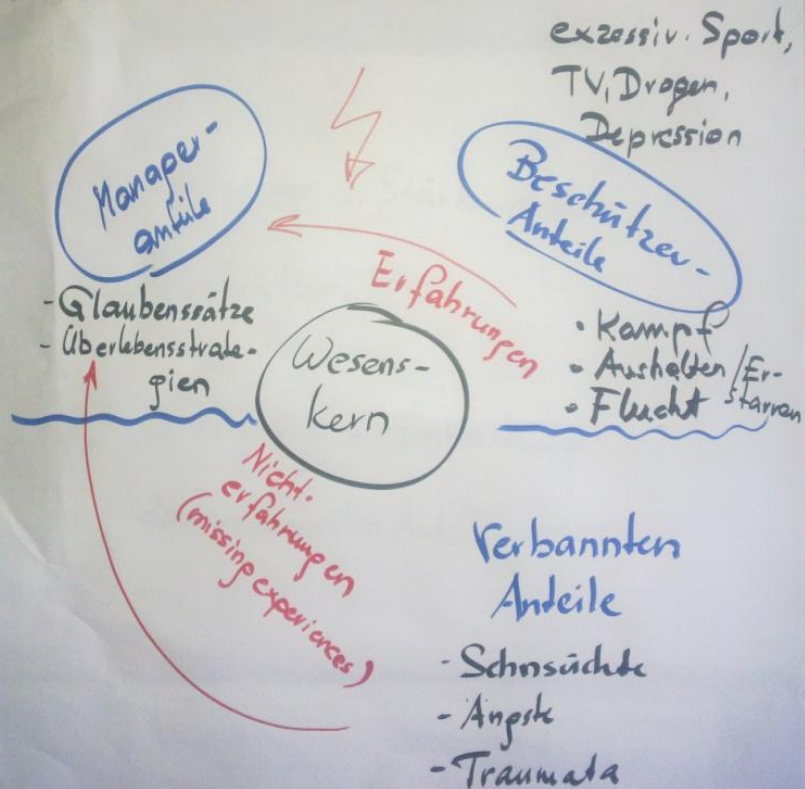 exzessiv. Sport,
TV, Drogen,
Depression
Manager-
anteile
Beschützer-
Anteile
- Glaubenssätze
- Überlebensstrate-
gien
Erfahrungen
Wesens-
kern
• Kampf
• Aushalten/Er-
starren
• Flucht
Nicht-
erfahrungen
(missing experiences)
Verbannten
Anteile
- Sehnsüchte
- Ängste
- Traumata